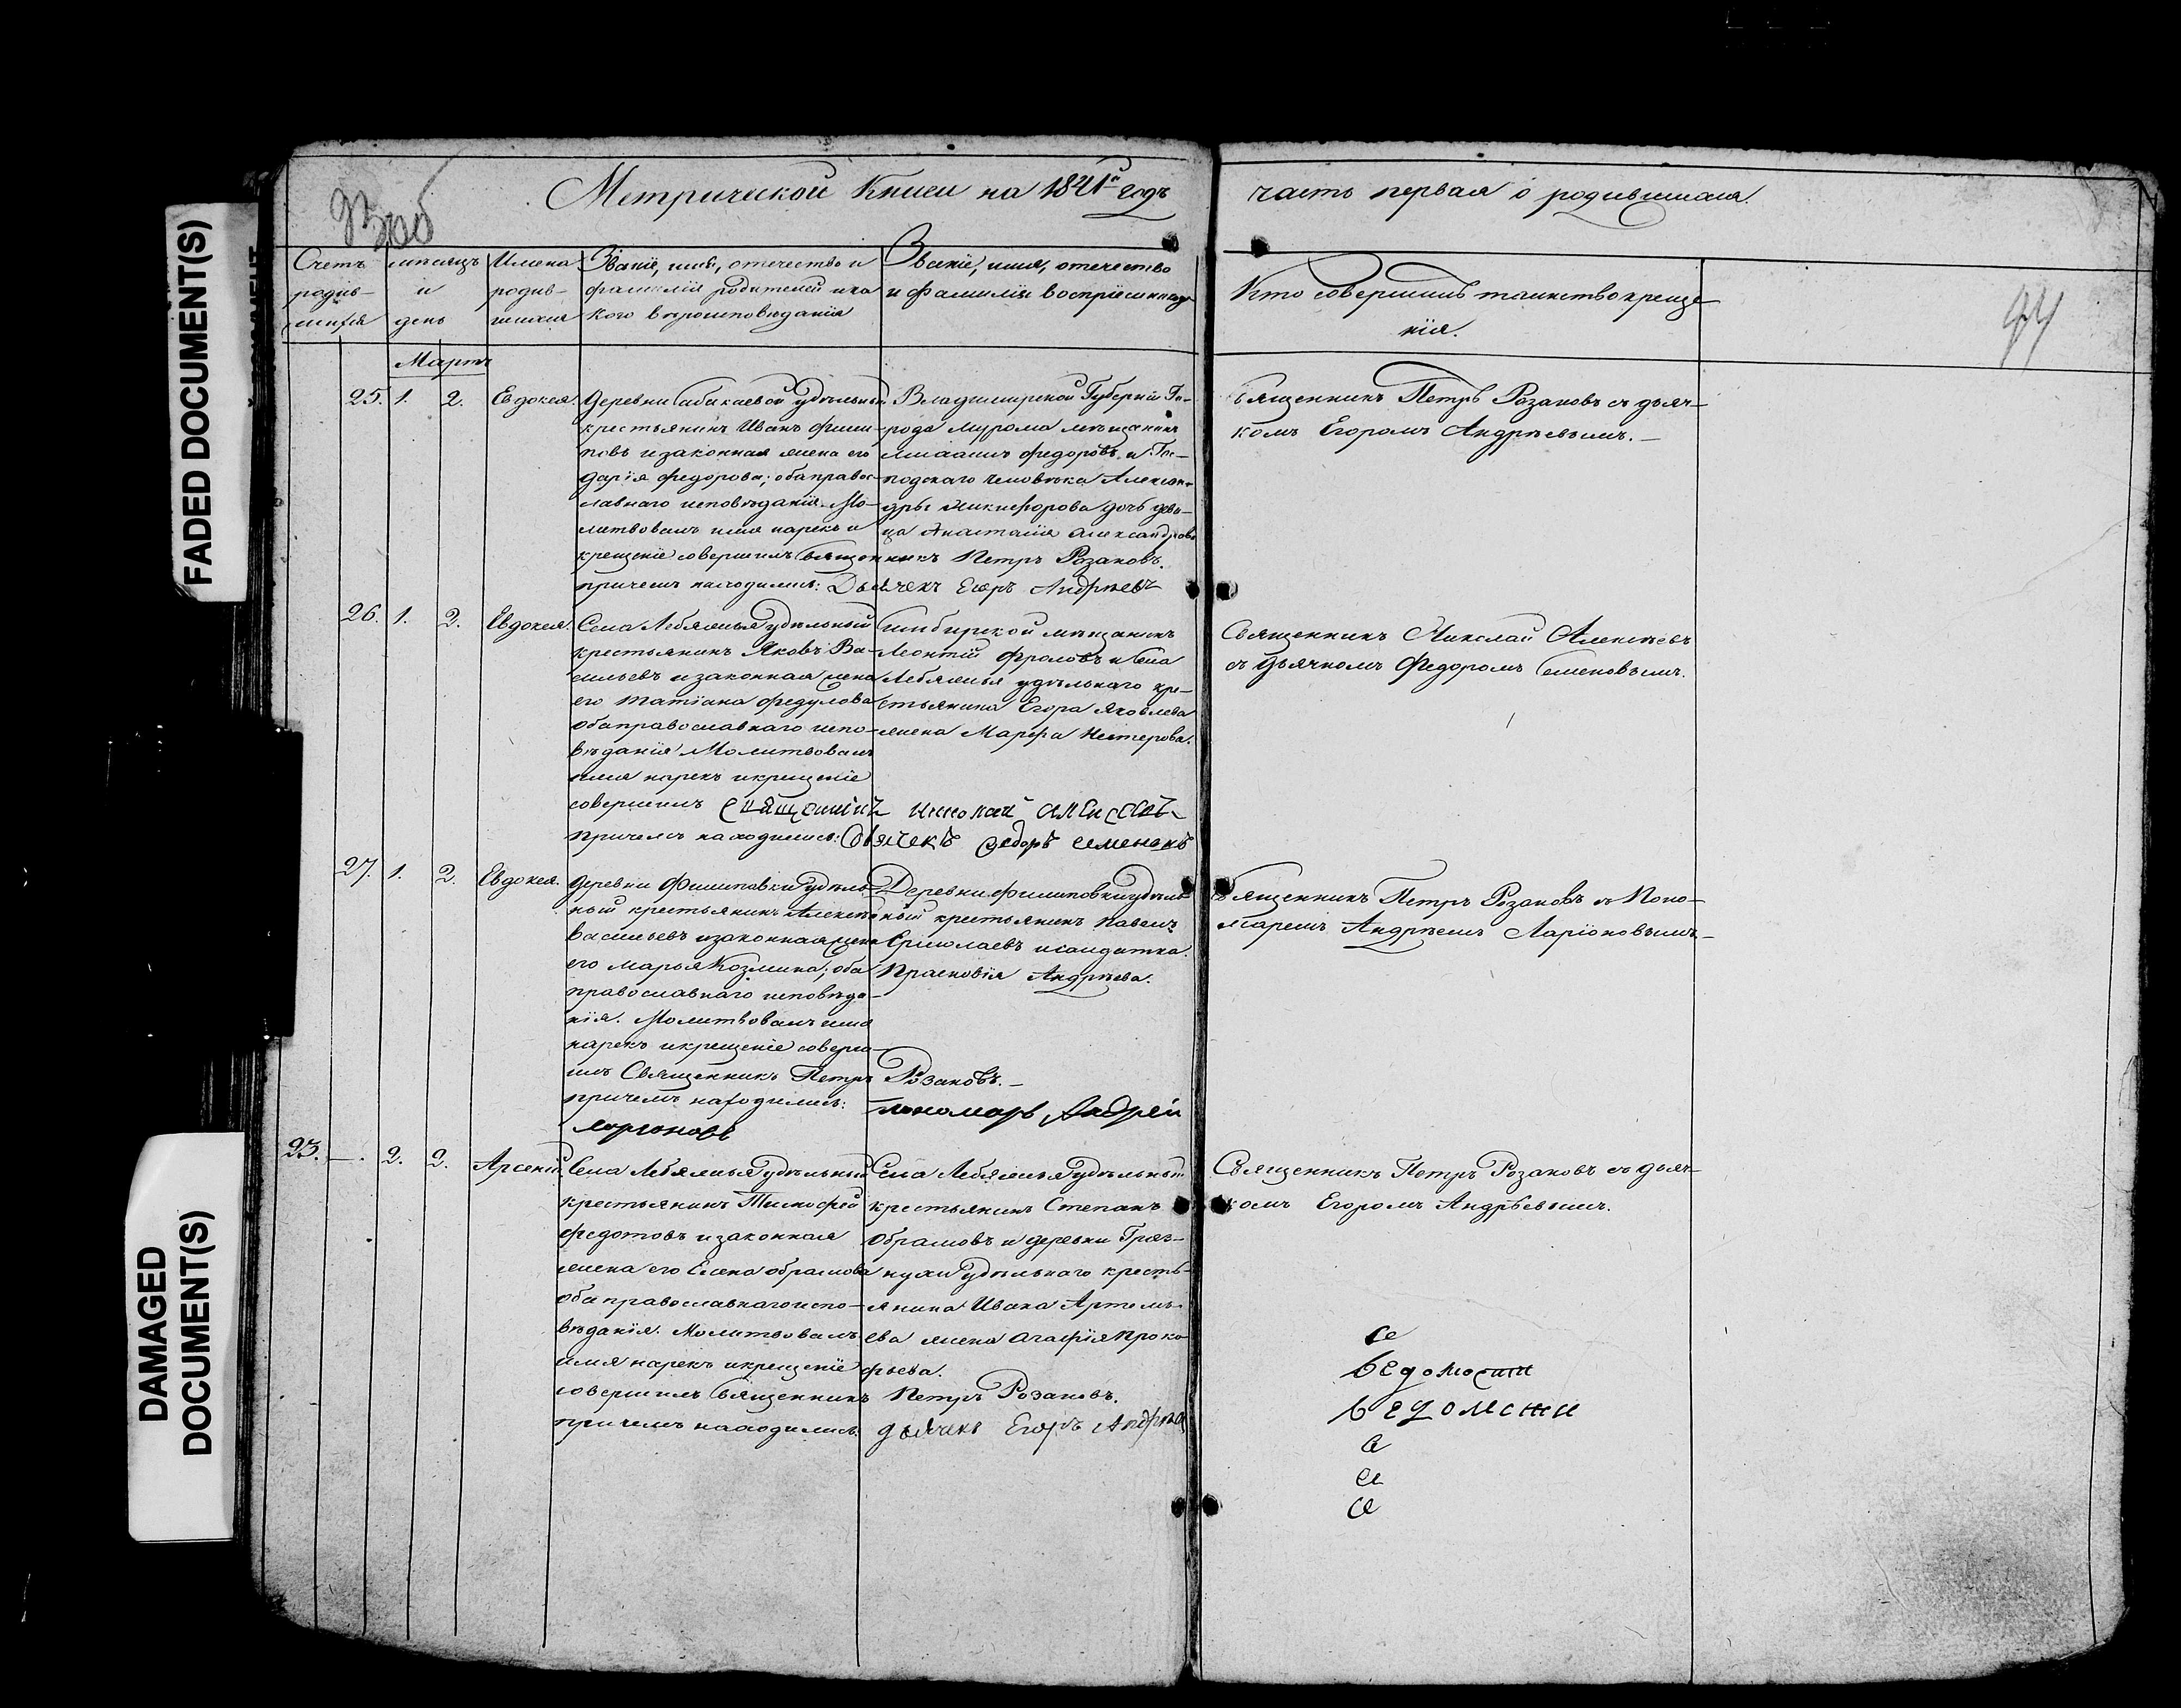 FADED DOCUMENT(S)
DAMAGED
DOCUMENT(S)
Метрической Книги на 1841й годъ
часть первая о родившихся.
Счетъ родившихся
мѣсяцъ и день
Имена родившихся
Званіе, имя, отечество и
фамилія родителей и ка
кого вѣроисповѣданія
Званіе, имя, отечество
и фамилія воспріемниковъ
Кто совершилъ таинство креще
нія.
94
Мартъ
25. 1. 2. Евдокея.
Деревни удѣльный
крестьянинъ Иванъ Филип
повъ и законная жена его
Дарія Федорова; оба правос
лавнаго исповѣданія. Мо-
литвовалъ имя нарекъ и
крещеніе совершилъ Священникъ Петръ Розановъ.
причемъ находились: Дьячекъ Егоръ Андрѣевъ
Владимирской Губерніи Го-
рода Мурома мѣщанинъ
Федоровъ и Гос-
подскаго человѣка Алексан-
дры Никифорова дочь дѣви-
ца Анастасія Александрова
Священникъ Петръ Розановъ съ дьяч-
комъ Егоромъ Андрѣевымъ.
26. 1. 2. Евдокея.
Села Лебяжья удѣльный
крестьянинъ Яковъ Ва-
сильевъ и законная жена
его Татіана Федулова
оба православнаго испо-
вѣданія Молитвовалъ
имя нарекъ и крещеніе
совершилъ Священникъ Николай Алексѣевъ
причемъ находились: Дьячекъ Федоръ Семеновъ
Симбирской мѣщанинъ
Леонтій Фроловъ и Села
Лебяжья удѣльнаго кре-
стьянина Егора Яковлева
жена Марфа Нестерова.
Священникъ Николай Алексѣевъ
съ дьячкомъ Федоромъ Семеновымъ.
27. 1. 2. Евдокея.
Деревни Филиповки удѣль
ный крестьянинъ Алексѣй
Васильевъ и законная жена
его Марья Козмина; оба
православнаго исповѣда-
нія. Молитвовалъ имя
нарекъ и крещеніе соверш-
илъ Священникъ Петръ Розановъ.
причемъ находились: пономарь Андрей
Ларионовъ
Деревни Филиповки удѣль
ный крестьянинъ Павелъ
Ермолаевъ и салдатка
Прасковія Андрѣева.
Священникъ Петръ Розановъ съ Поно-
маремъ Андрѣемъ Ларіоновымъ
23. —. 2. 2. Арсеній.
Села Лебяжья удѣльный
крестьянинъ Тимофей
Федотовъ и законная
жена его Елена Обрамова
оба православнаго испо-
вѣданія. Молитвовалъ
имя нарекъ и крещеніе
совершилъ Священникъ Петръ Розановъ.
причемъ находились: дьячекъ Егоръ Андрѣевъ
Села Лебяжья удѣльный
крестьянинъ Степанъ
Обрамовъ и деревни Гряз-
нухи удѣльнаго кресть-
янина Ивана Артемь-
ева жена Агафія Проко-
фьева.
Священникъ Петръ Розановъ съ дьяч-
комъ Егоромъ Андрѣевымъ.
се
ведомости
ведомости